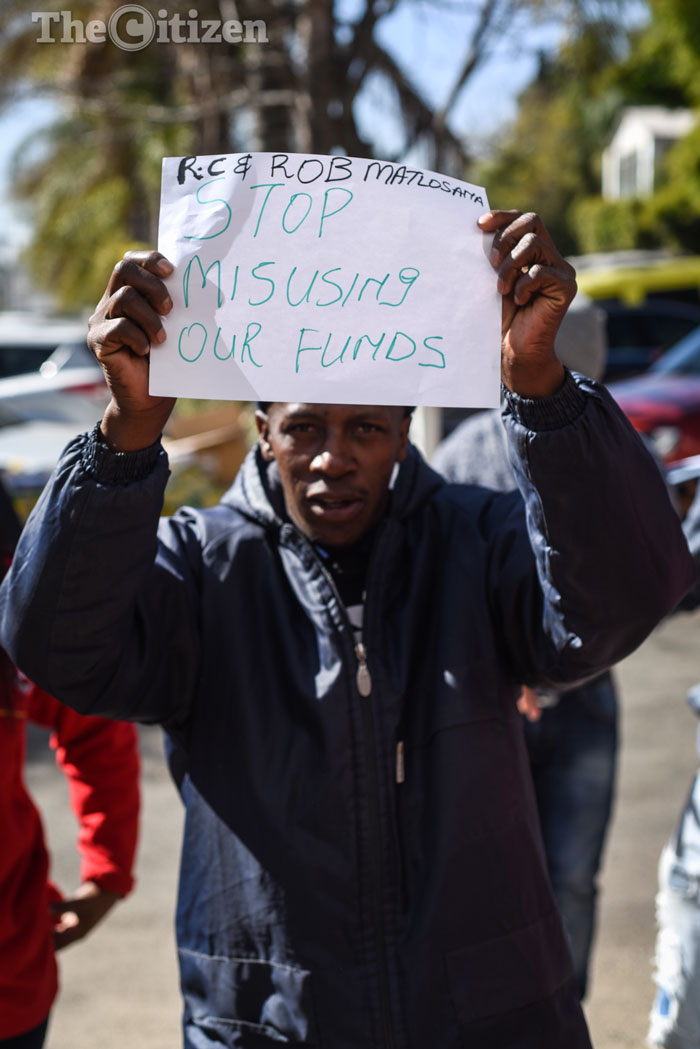 The Citizen
R.C & ROB MATLOSANA
STOP
MISUSING
OUR FUNDS